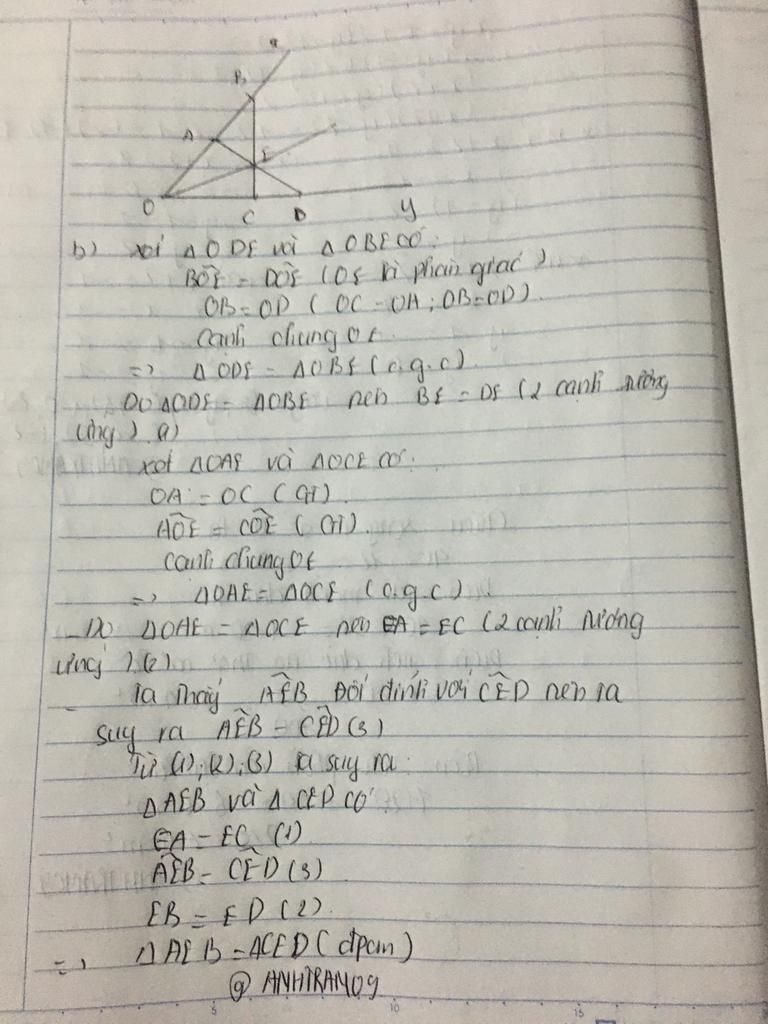 x
B
A
E
O
C
D
y
b) xét ΔODE và ΔOBE có:
BÔE = DÔE (OE là phân giác)
OB = OD (OC = OA; OB = OD).
Cạnh chung OE
=> ΔODE = ΔOBE (c.g.c).
Do ΔODE = ΔOBE nên BE = DE (2 cạnh tương
ứng). (1)
xét ΔOAE và ΔOCE có:
OA = OC (GT).
AÔE = CÔE (GT).
Cạnh chung OE
=> ΔOAE = ΔOCE (c.g.c).
- Do ΔOAE = ΔOCE nên EA = EC (2 cạnh tương
ứng). (2)
- Ta thấy AÊB đối đỉnh với CÊD nên ta
suy ra AÊB = CÊD (3)
Từ (1); (2); (3) ta suy ra:
ΔAEB và ΔCED có:
EA = EC (1)
AÊB = CÊD (3)
EB = ED (2).
=> ΔAEB = ΔCED (đpcm)
@ ANHTRAN09
5
10
15